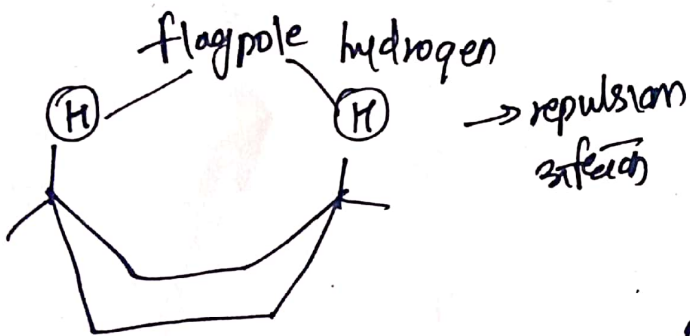 flagpole hydrogen
H H → repulsion